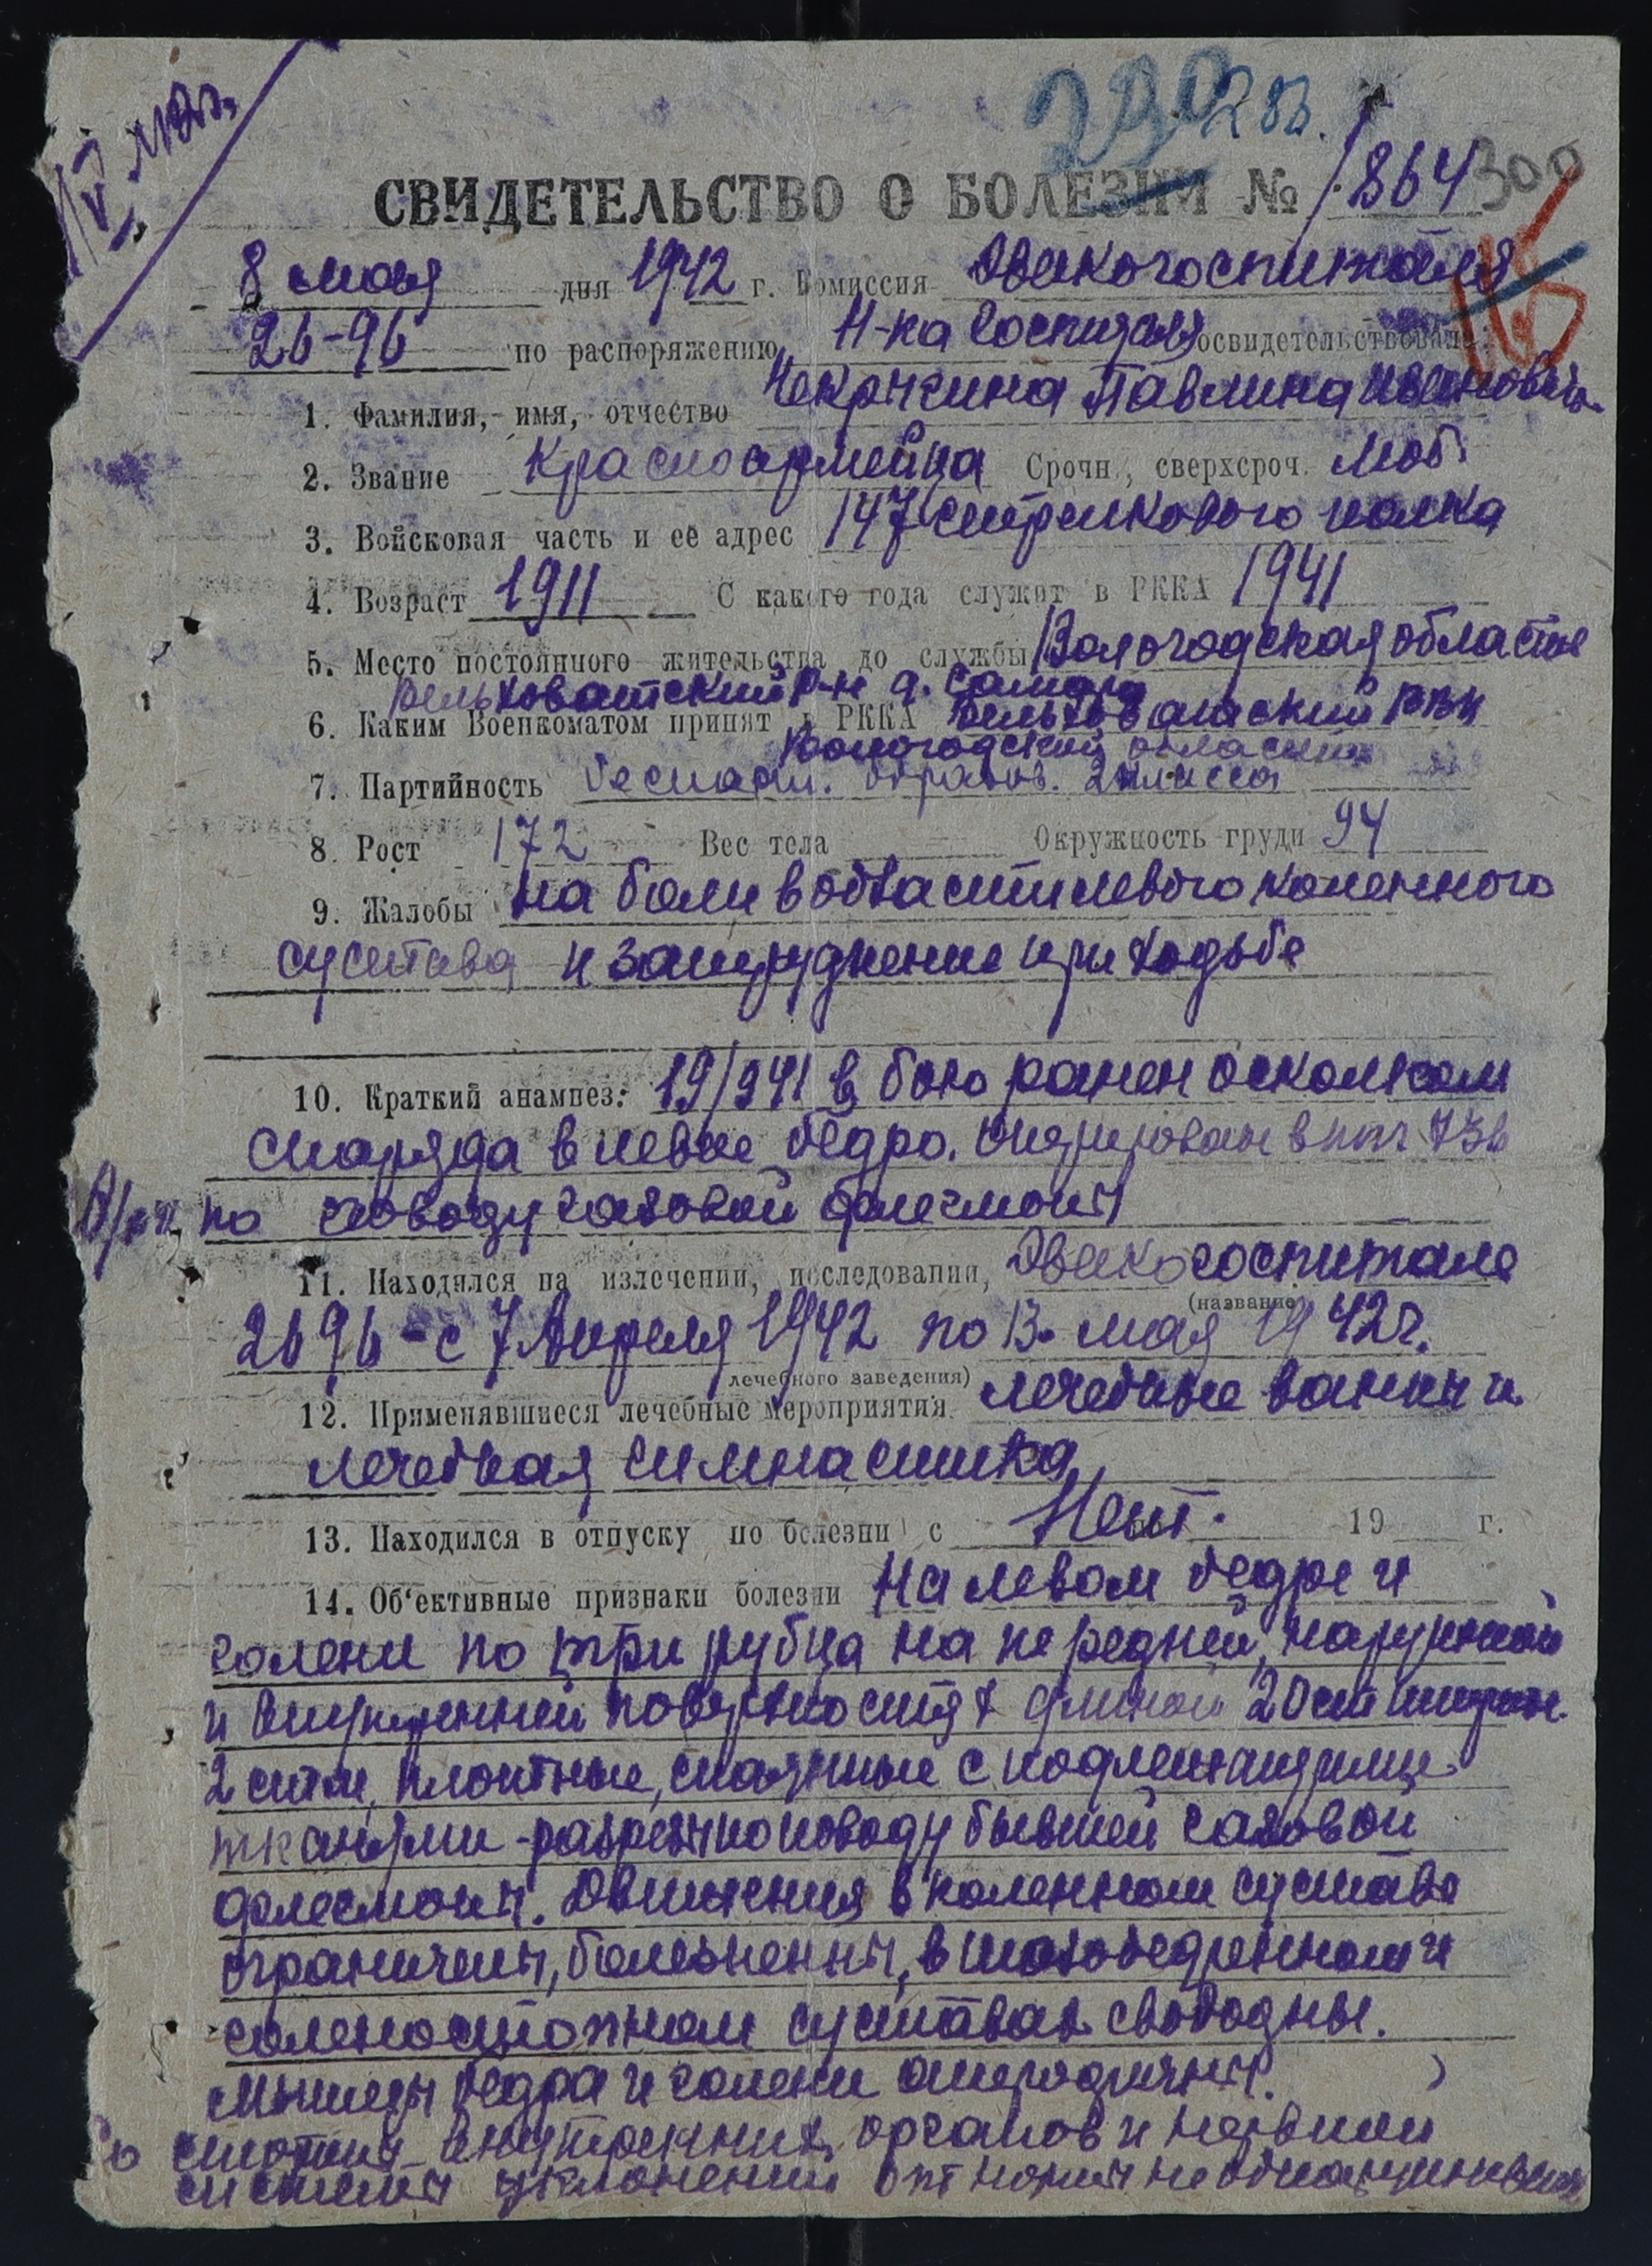 290 283.
СВИДЕТЕЛЬСТВО О БОЛЕЗНИ № 1864 300
8 мая дня 1942 г. Комиссия Эвакогоспиталя
26-96 по распоряжению Н-ка Госпиталя освидетельствовала:
1. Фамилия, имя, отчество Павлина Ивановича
2. Звание Красноармейца Срочн., сверхсроч. Моб.
3. Войсковая часть и её адрес 147 стрелкового полка
4. Возраст 1911 С какого года служит в РККА 1941
5. Место постоянного жительства до службы Вологодская область
р-н д.
6. Каким Военкоматом принят в РККА РВК
Вологодский области
7. Партийность беспарт. образов. 2 класса
8. Рост 172 Вес тела Окружность груди 94
9. Жалобы на боли в области левого коленного
сустава и затруднение при ходьбе
10. Краткий анамнез: в бою ранен осколком
снаряда в левое бедро. в
по поводу газовой флегмоны
11. Находился на излечении, исследовании, Эвакогоспитале
(название
2696 - с 7 Апреля 1942 по 13 мая 1942 г.
лечебного заведения)
12. Применявшиеся лечебные мероприятия лечебные ванны и
лечебная гимнастика
13. Находился в отпуску по болезни с Нет. 19 г.
14. Об'ективные признаки болезни На левом бедре и
голени по три рубца на передней, наружной
и внутренней поверхностях длиной 20 см ширин.
2 сант, плотные, спаянные с подлежащими
тканями - разрезы по поводу бывшей газовой
флегмоны. Движения в коленном суставе
ограничены, болезненны, в тазобедренном и
голеностопном суставах свободны.
Мышцы бедра и голени атрофичны.
Со стороны внутренних органов и нервной
системы уклонений от нормы не обнаружив